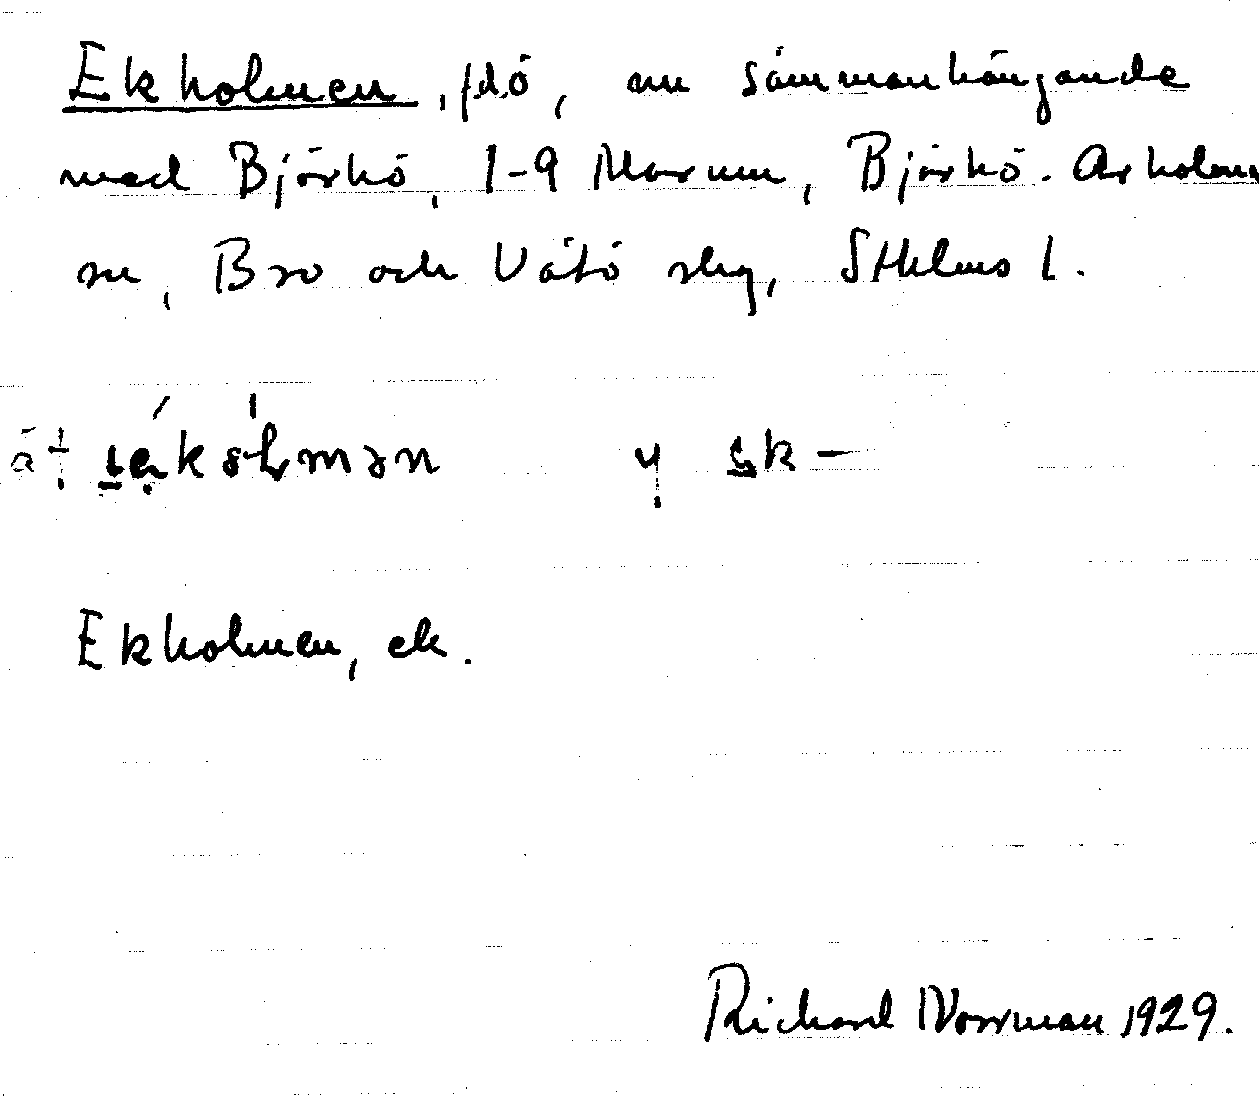 Ekholmen, f.d. ö, nu sammanhängande
med Björkö, 1-9 Marum, Björkö-Arholma
sn, Bro och Vätö skg, Sthlms l.
Ekholmen, ek.
Richard Norrman 1929.